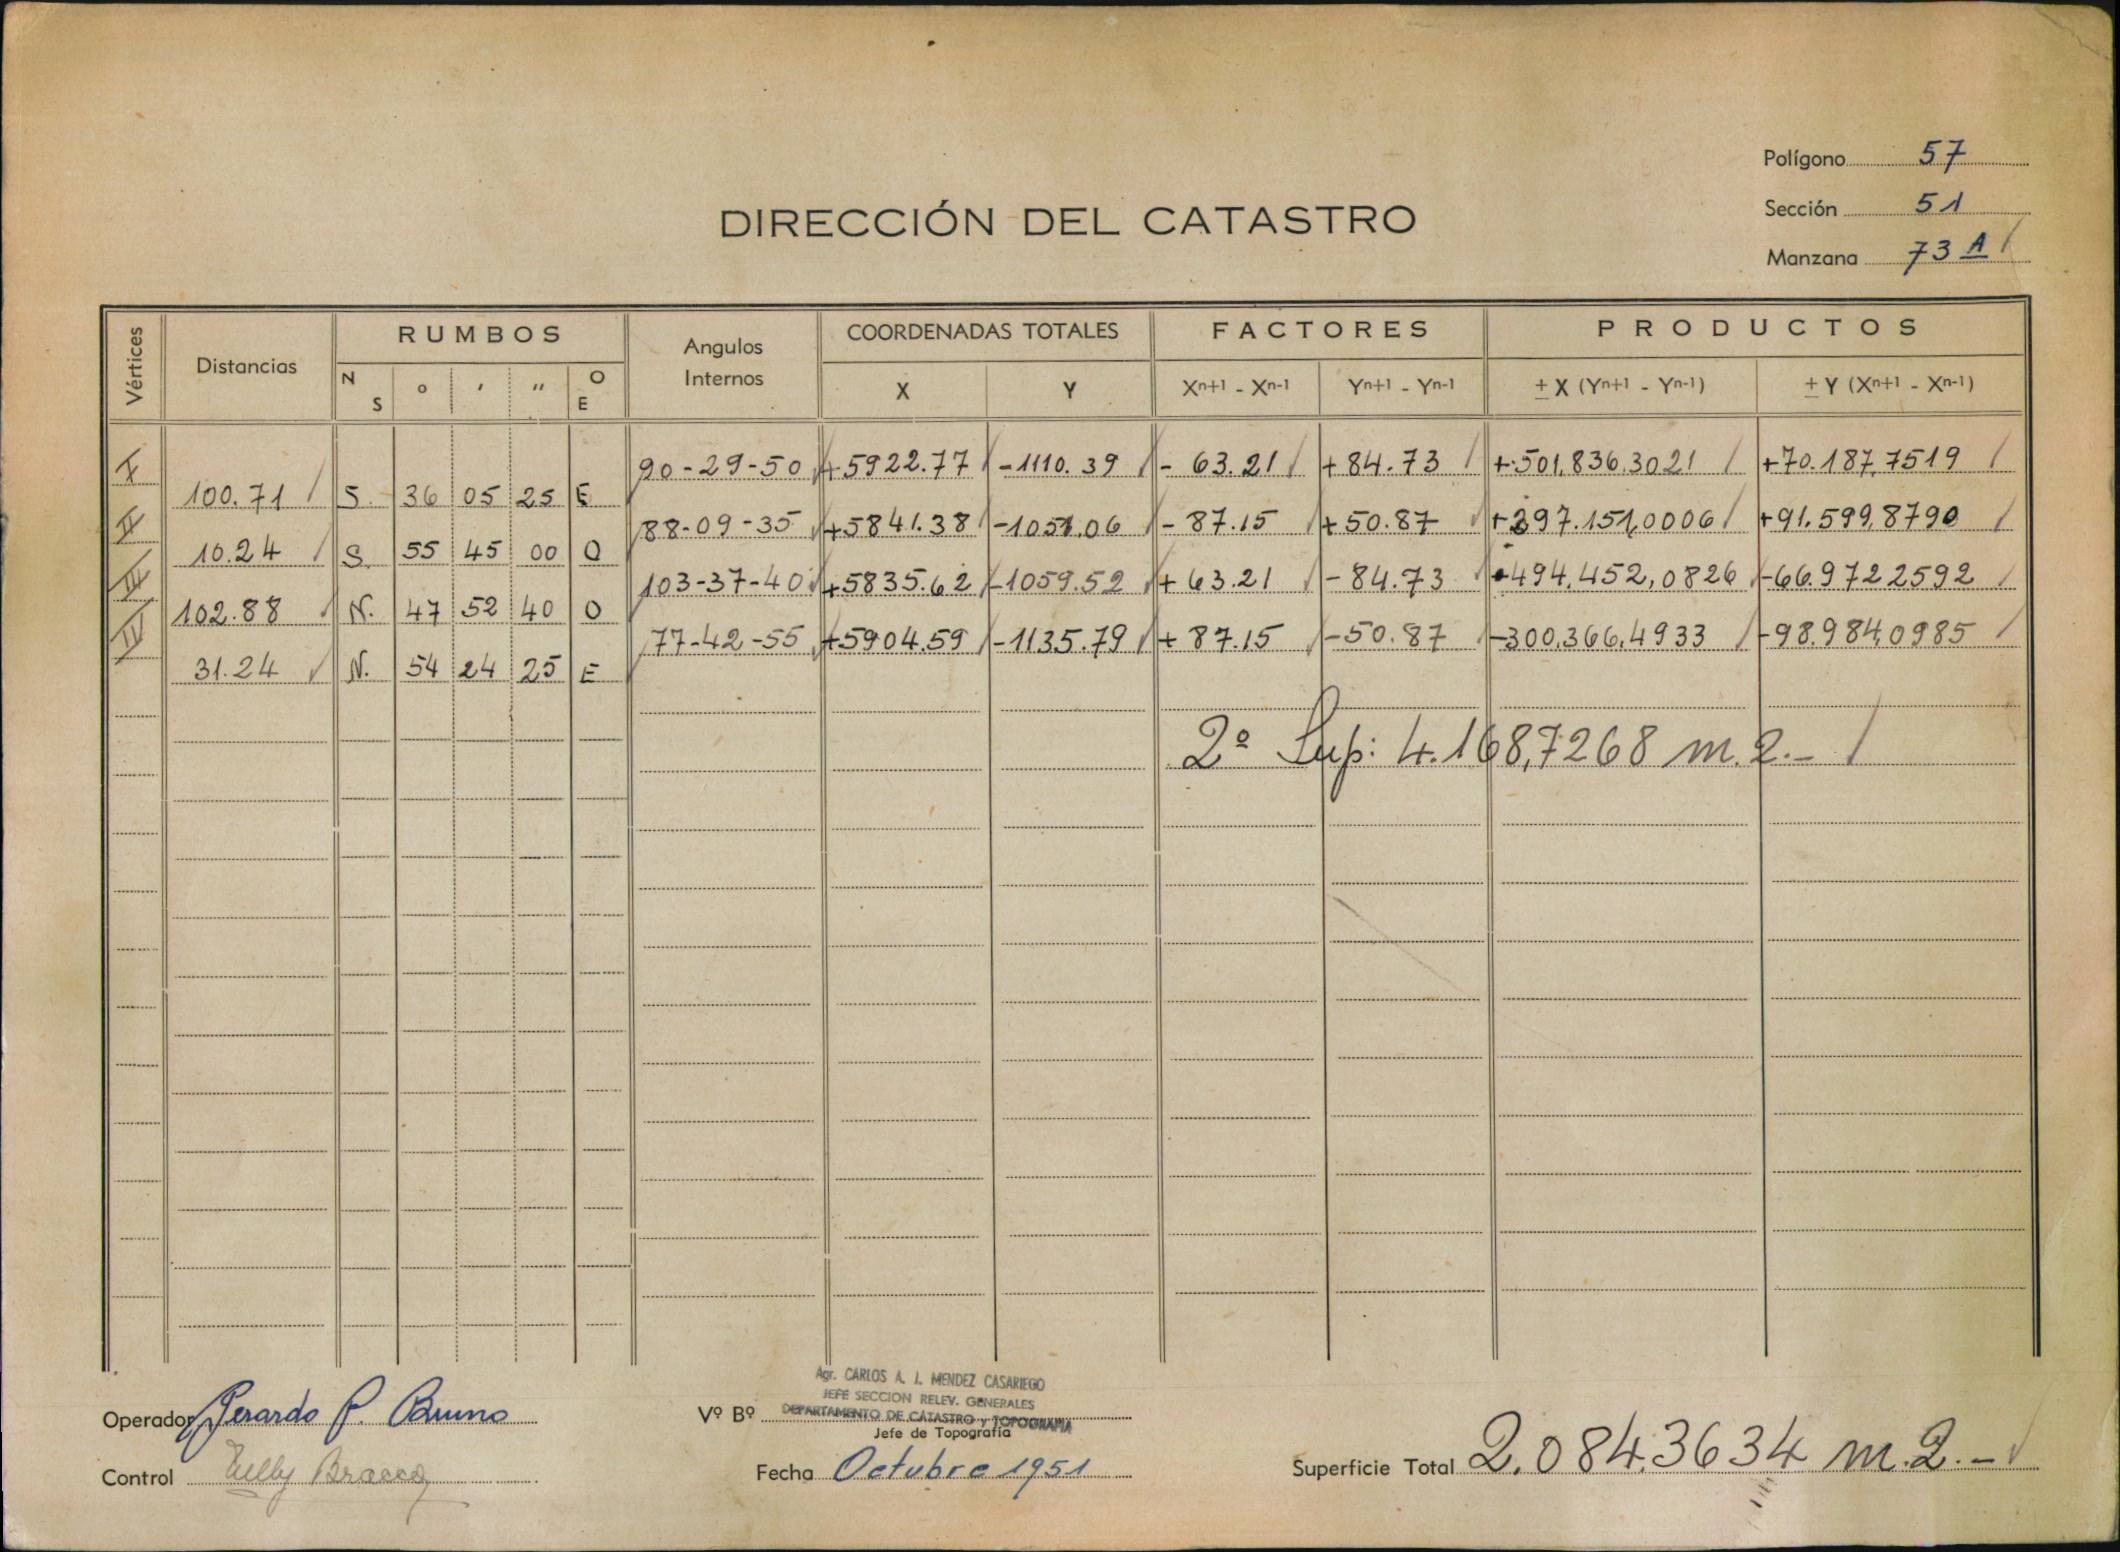 Polígono 57
Sección 51
Manzana 73 A
DIRECCIÓN DEL CATASTRO
Vértices Distancias RUMBOS Angulos Internos COORDENADAS TOTALES FACTORES PRODUCTOS
N S ° ' " O E X Y Xn+1 - Xn-1 Yn+1 - Yn-1 ± X (Yn+1 - Yn-1) ± Y (Xn+1 - Xn-1)
I 90-29-50 +5922.77 -1110.39 - 63.21 +84.73 +501,836,3021 +70.187,7519
100.71 S. 36 05 25 E
II 88-09-35 +5841.38 -1051.06 - 87.15 +50.87 +297.151,0006 +91.599,8790
10.24 S. 55 45 00 O
III 103-37-40 +5835.62 -1059.52 + 63.21 -84.73 -494.452,0826 -66.972,2592
102.88 N. 47 52 40 O
IV 77-42-55 +5904.59 -1135.79 + 87.15 -50.87 -300,366,4933 -98.984,0985
31.24 N. 54 24 25 E
2º Sup: 4.168,7268 m.2.-
Agr. CARLOS A. J. MENDEZ CASARIEGO
JEFE SECCION RELEV. GENERALES
DEPARTAMENTO DE CATASTRO y TOPOGRAFIA
Operador Gerardo P. Bruno Vº Bº
Jefe de Topografía
Control Fecha Octubre 1951 Superficie Total 2.084,3634 m.2.-